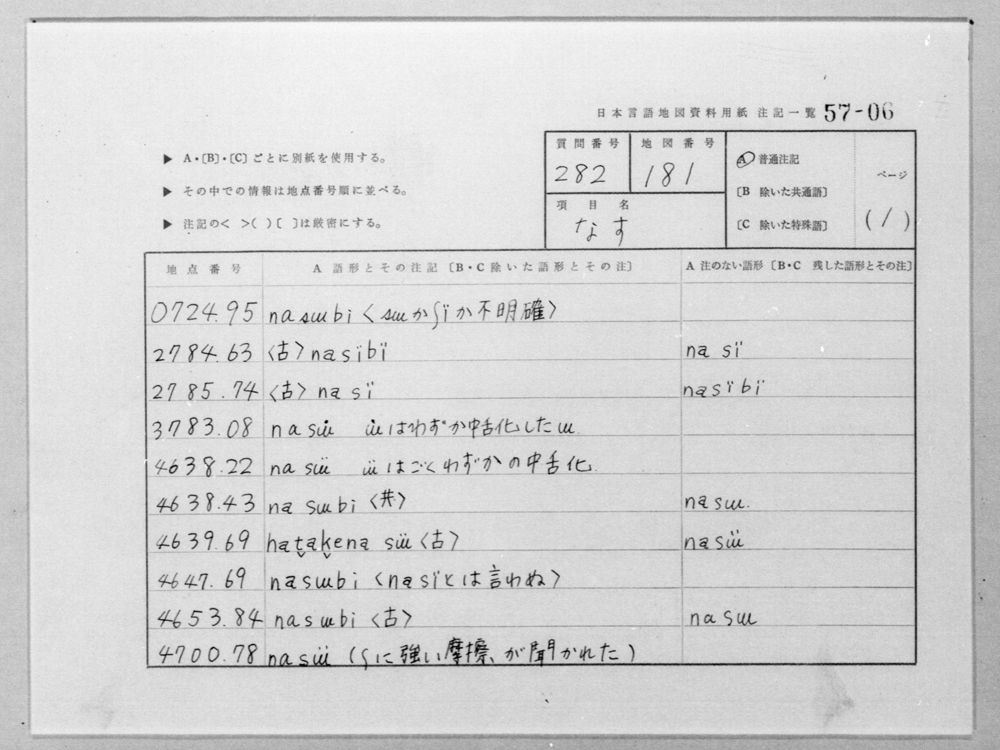 日本言語地図資料用紙 注記一覧 57-06
▶ A・〔B〕・〔C〕ごとに別紙を使用する。
▶ その中での情報は地点番号順に並べる。
▶ 注記の< >( )[ ]は厳密にする。
質問番号 282
地図番号 181
項目名 なす
Ⓐ 普通注記
〔B 除いた共通語〕
〔C 除いた特殊語〕
ページ
(1)
地点番号 A 語形とその注記〔B・C除いた語形とその注〕 A 注のない語形〔B・C 残した語形とその注〕
0724.95 nasɯbi 〈sɯかʃïか不明確〉
2784.63 〈古〉nasïbï nasï
2785.74 〈古〉nasï nasïbï
3783.08 nasɯ̈ ɯ̈はわずか中舌化したɯ
4638.22 nasɯ̈ ɯ̈はごくわずかの中舌化
4638.43 nasɯbi 〈共〉 nasɯ.
4639.69 hat̬ak̬ena sɯ̈〈古〉 nasɯ̈
4647.69 nasɯbi 〈nasïとは言わぬ〉
4653.84 nasɯbi 〈古〉 nasɯ
4700.78 nasɯ̈ (ʃに強い摩擦、が聞かれた)